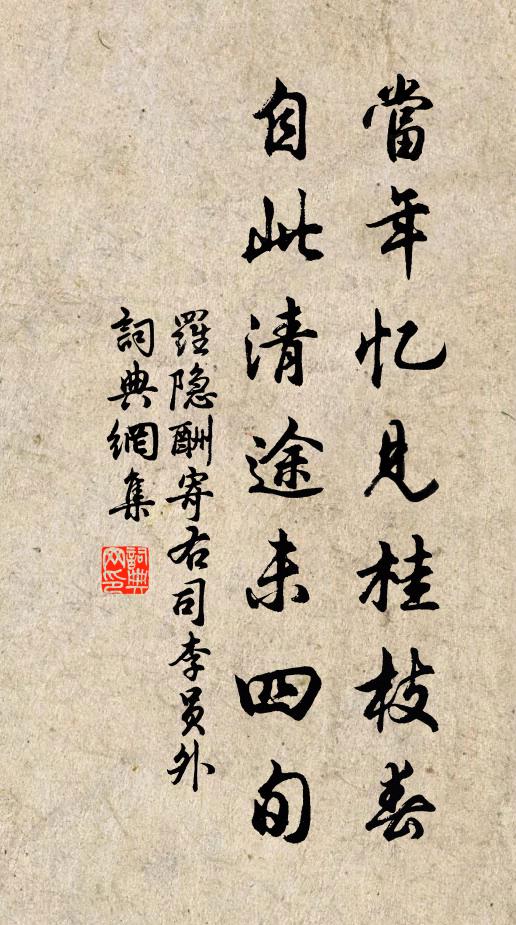 當年忆見桂枝春
自此清途未四旬
羅隐酬寄右司李员外
詞典網集
詞典网印